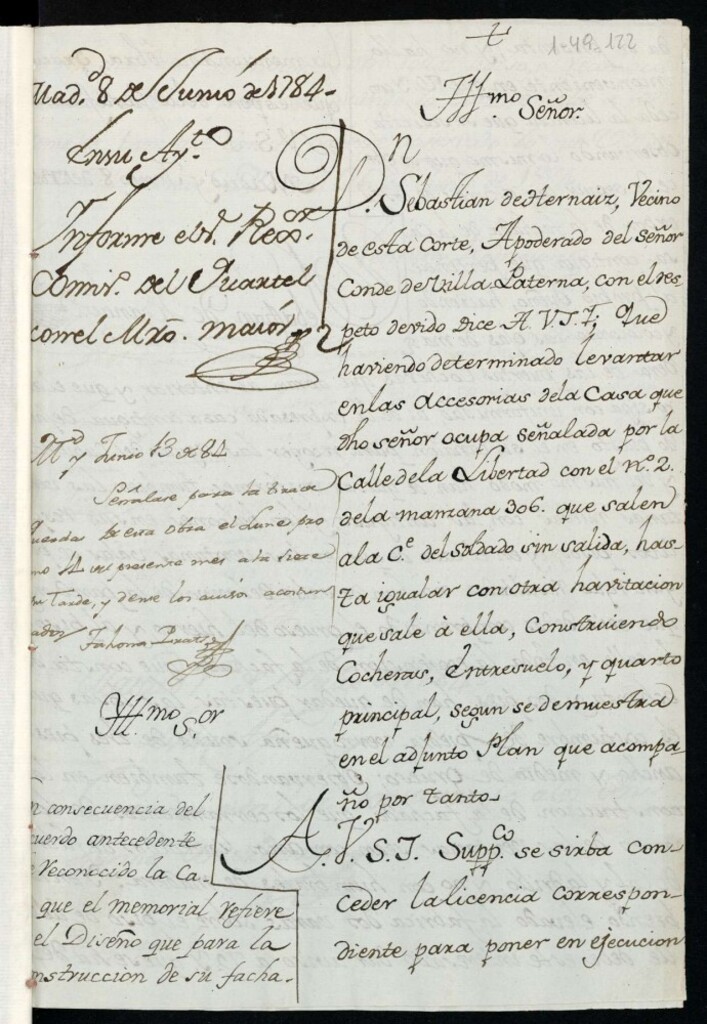 1-49-122
Mad.d 8 de Junio de 1784.
En su Ay.to
Informe el S.r Rex.or
Comis.o del Quartel
con el Mro. maior
M.d y Junio 13 de 84
Señalase para la tira de
de esta obra el Lune pro
14 del presente mes a la siete
Tarde, y dense los avisos acostum
Ill.mo S.or
n consecuencia del
cuerdo antecedente
reconocido la Ca-
que el memorial refiere
el Diseño que para la
nstruccion de su facha-
Ill.mo Señor.
D.n
Sebastian de Hernaiz, Vecino
de esta Corte, Apoderado del Señor
Conde de Villa Paterna, con el res-
peto devido Dice A. V.S.I; Que
haviendo determinado levantar
en las Accesorias dela Casa que
dho señor ocupa señalada por la
Calle dela Libertad con el n.o 2.
dela manzana 306. que salen
ala C.e del soldado sin salida, has-
ta igualar con otra havitacion
que sale à ella, Construiendo
Cocheras, Entresuelo, y quarto
principal, segun se demuestra
en el adjunto Plan que acompa-
ño por tanto-
A. V. S. I. Supp.co se sirba con-
ceder la licencia correspon-
diente para poner en ejecucion